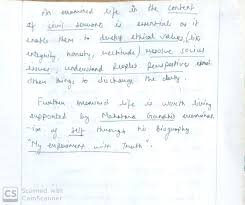 An examined life in the context
of civil servant is essential as it
enable them to develop ethical values, (big
integrity, honesty, rectitude) resolve social
issues, understand people's perspective and
other things to discharge the duty.
Further examined life is worth living
supported by Mahatma Gandhi's examinat
-ion of self through his biography
"My experiment with Truth".
CS Scanned with
CamScanner